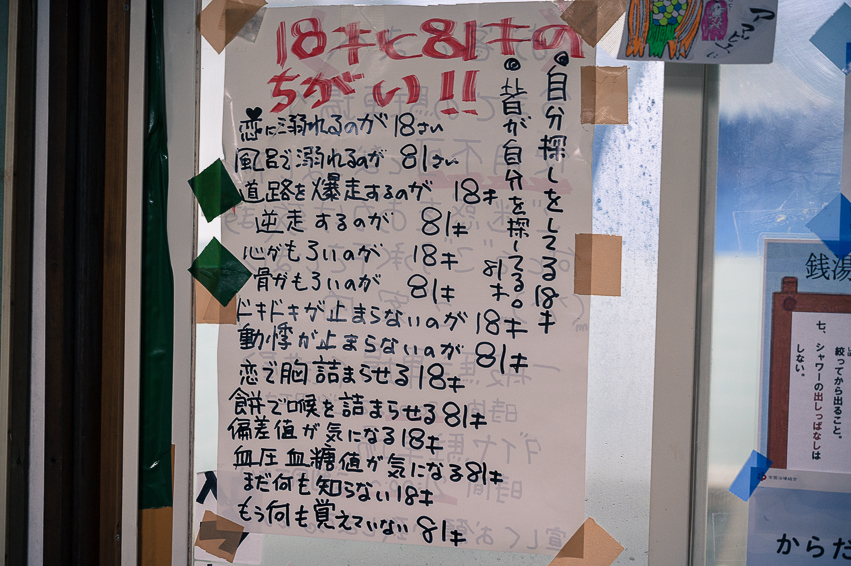 18キと81キの
ちがい!!
恋に溺れるのが 18さい
風呂で溺れるのが 81さい
道路を爆走するのが 18キ
逆走するのが 81キ
心がもろいのが 18キ
骨がもろいのが 81キ
ドキドキが止まらないのが 18キ
動悸が止まらないのが 81キ
恋で胸詰まらせる 18キ
餅で喉を詰まらせる 81キ
偏差値が気になる 18キ
血圧血糖値が気になる 81キ
まだ何も知らない 18キ
もう何も覚えていない 81キ
自分探しをしてる 18キ
皆が自分を探してる。81キ
アマビエ
銭湯
七、シャワーの出しっぱなしは
しない。
絞ってから出ること。
からだ